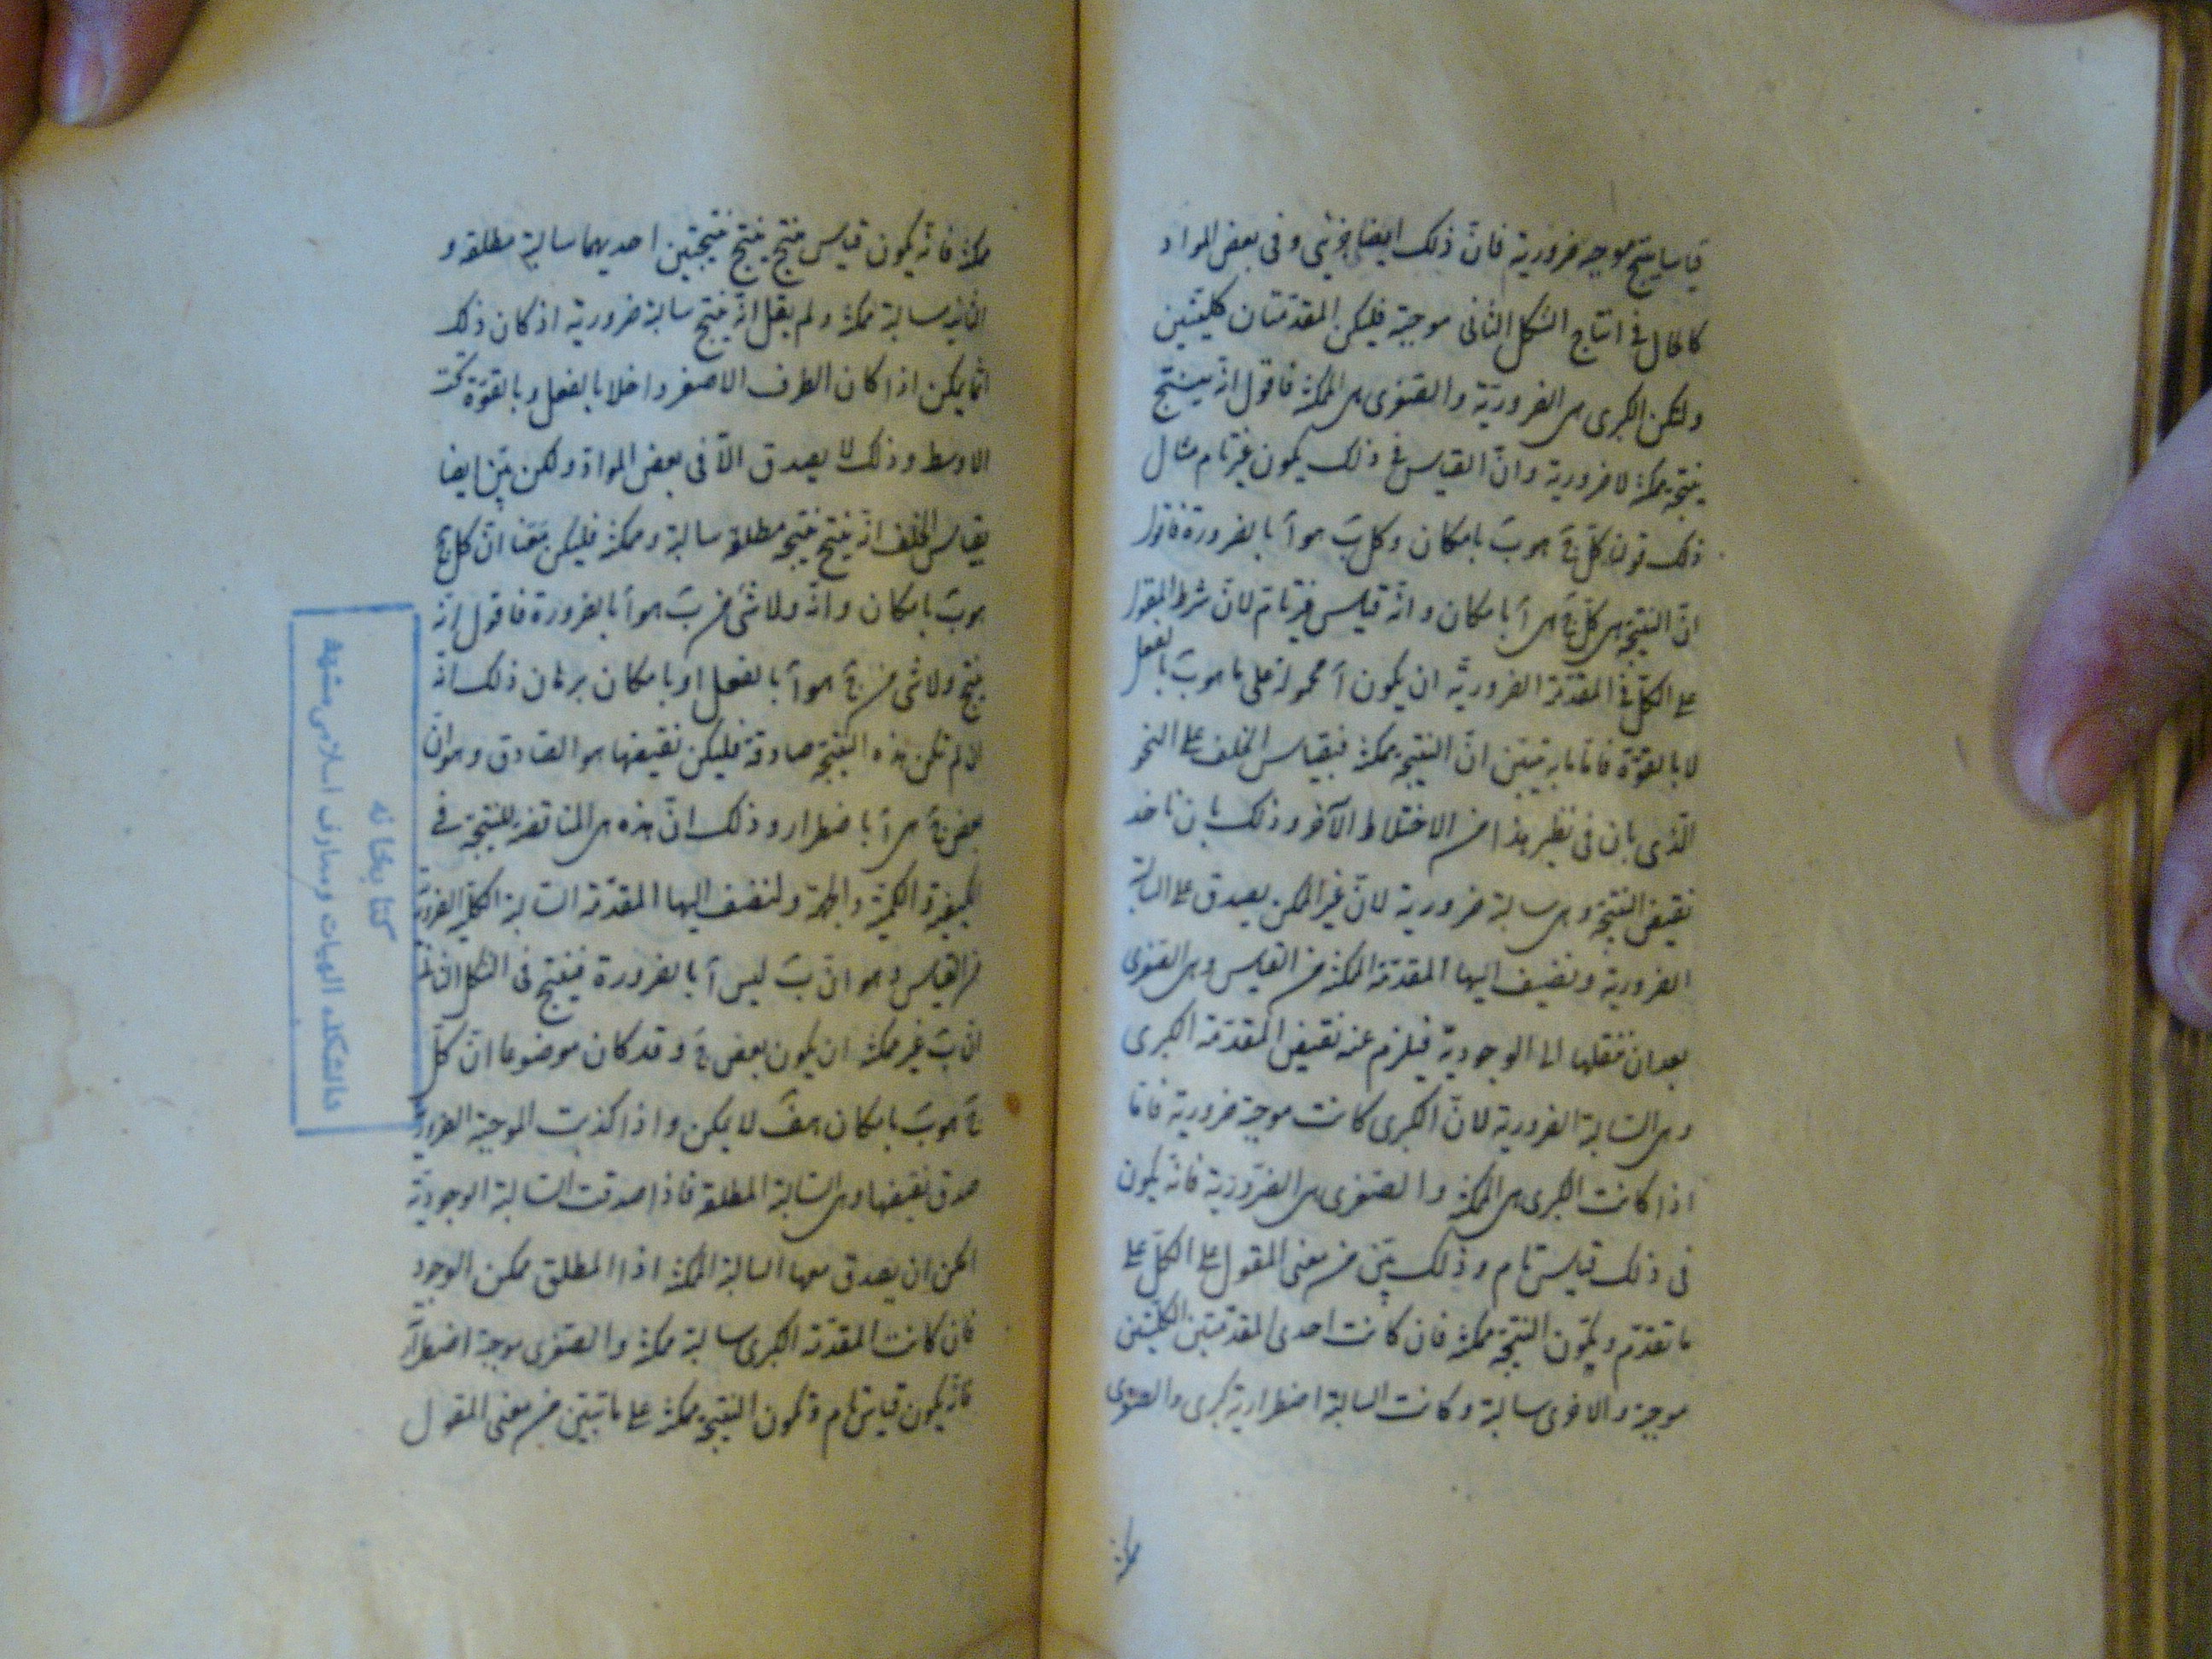 قياسا ينتج موجبه ضرورية فانّ ذلك ايضا جزئى وفى بعض المواد
كالحال فى انتاج الشكل الثانى موجبة فليكن المقدّمتان كليّتين
ولتكن الكبرى هى الضروريّة والصّغرى هى الممكنة فاقول انّه ينتج
نتيجة ممكنة لا ضرورية وانّ القياس فى ذلك يكون غير تام مثال
ذلك قولنا كلّ جَ هو بَ بامكان وكل بَ هو أ بالضرورة فاقول
انّ النتيجة هى كلّ جَ هى أ بامكان وانّه قياس غير تام لانّ شرط المقول
على الكلّ فى المقدّمة الضروريّة ان يكون أ محمولة على ما هو بَ بالفعل
لا بالقوّة فاما ما به يتبيّن انّ النتيجة ممكنة فبقياس الخلف على النحو
الّذى بان فى نظير هذا من الاختلاط الآخر وذلك بان ناخذ
نقيض النتيجة وهى سالبة ضرورية لانّ غير الممكن يصدق على السالبة
الضرورية ونضيف اليها المقدّمة الممكنة من القياس وهى الصّغرى
بعد ان ننقلها الى الوجودية فيلزم عنه نقيض المقدّمة الكبرى
وهى السّالبة الضرورية لانّ الكبرى كانت موجبة ضرورية فامّا
اذا كانت الكبرى هى الممكنة والصّغرى هى الضّرورية فانّه يكون
فى ذلك قياس تام وذلك بيّن من معنى المقول على الكلّ على
ما تقدّم ويكون النتيجة ممكنة فان كانت احدى المقدّمتين الكليّتين
موجبة والاخرى سالبة وكانت السالبة اضطرارية كبرى والصغرى
ممكنة
ممكنة فانّه يكون قياس منتج ينتج نتيجتين احديهما سالبة مطلقة و
الثانية سالبة ممكنة ولم يقل انّه ينتج سالبة ضرورية اذ كان ذلك
انّما يمكن اذا كان الطرف الاصغر داخلا بالفعل وبالقوّة تحت
الاوسط وذلك لا يصدق الّا فى بعض الموادّ ولكن بيّن ايضا
بقياس الخلف انّه ينتج نتيجة مطلقة سالبة وممكنة فليكن معنا انّ كل جَ
هو بَ بامكان وانّه ولا شئ من بَ هو أ بالضرورة فاقول انّه
ينتج ولا شئ من جَ هو أ بالفعل او بامكان برهان ذلك انّه
ان لم تكن هذه النتيجة صادقة فليكن نقيضها هو الصّادق وهو انّ
بعض جَ هى أ باضطرار وذلك انّ هذه هى المناقضة للنتيجة فى
الكيفية والكمية والجهة ولنضف اليها المقدّمة السّالبة الكلّية الضرورية
من القياس وهو انّ بَ ليس أ بالضرورة فينتج فى الشكل الثانى
انّ بَ غير ممكنة ان يكون بعض جَ وقد كان موضوعا انّ كلّ
جَ هو بَ بامكان هفَ لا يمكن واذا كذبت الموجبة الضرورية
صدق نقيضها وهى السّالبة المطلقة فاذا صدقت السّالبة الوجوديّة
امكن ان يصدق معها السالبة الممكنة اذ المطلق ممكن الوجود
فان كانت المقدّمة الكبرى سالبة ممكنة والصّغرى موجبة اضطراريّة
فانّه يكون قياس تام وتكون النتيجة ممكنة على ما تبيّن من معنى المقول
كتابخانه
دانشكده الهيات ومعارف اسلامى مشهد